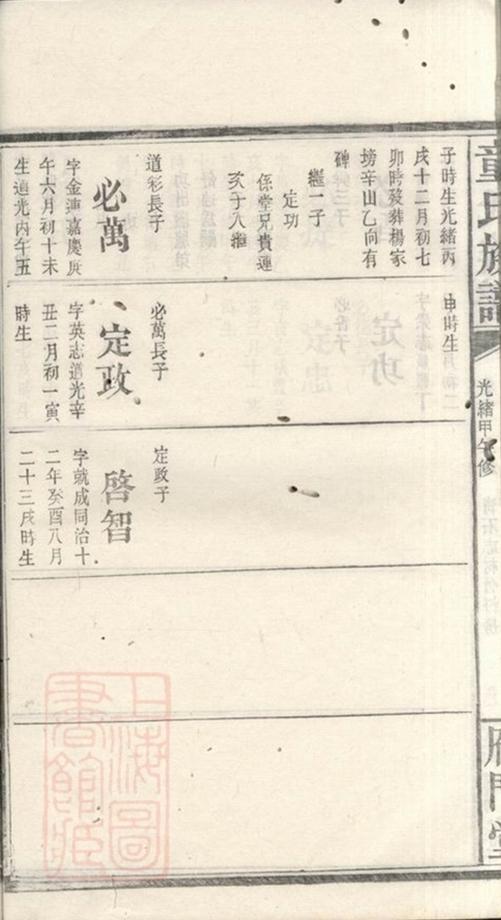 童氏族譜
光緒甲午修
雁門堂
子時生光緒丙
戌十二月初七
卯時歿葬楊家
塝辛山乙向有
碑
繼一子
定功
係堂兄貴連
次子入繼
道彩長子
必萬
字金連嘉慶庚
午六月初十未
生道光丙午五
申時生
必萬長子
定政
字英志道光辛
丑二月初一寅
時生
定政子
啓智
字就成同治十
二年癸酉八月
二十三戌時生
上海圖
書館藏